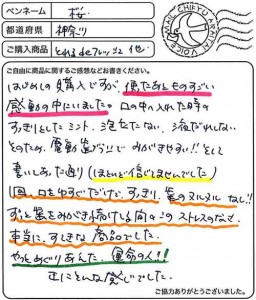 MAIL CHIKYU ARATAI VOICE
ペンネーム 桜
都道府県 神奈川
ご購入商品 とれるdeブラッシュ 他
ご自由に商品に関するご感想などお書きください。
はじめての購入ですが、使たあともすごい
感動の中にいました。口の中へ入れた時の
すっきりとしたミント、泡立たない、液だれしない
そのため、電動歯ブラシでみがきやすい!!そして
書いてあった通り(ほとんど信じてませんでした)
1回、口をゆすぐだけで、すっきり、歯のヌルヌルなし!!
ずっと歯をみがき続けてる間の このストレスのなさ、
本当に、すてきな商品でした。
やっとめぐりあえた、運命の人!!
正にそんな感じでした。
ご協力ありがとうございました。